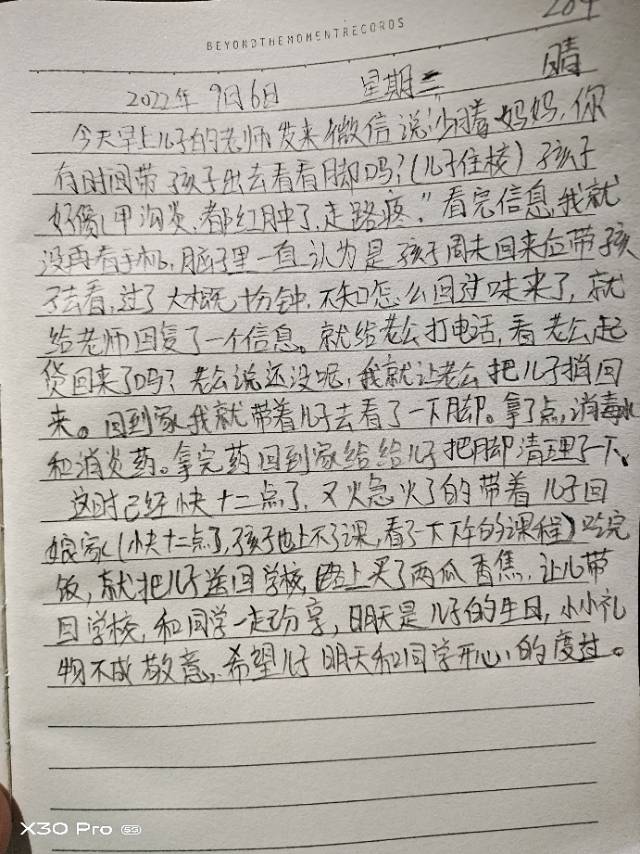 204
BEYONDTHEMOMENTRECORDS
2022年 9月6日 星期二 晴
今天早上儿子的老师发来微信说"腾妈妈,你
有时间带孩子出去看看脚吗?(儿子住校)孩子
好像甲沟炎,都红肿了,走路疼。"看完信息,我就
没再看手机,脑子里一直认为是孩子周末回来在带孩
子去看,过了大概十分钟,不知怎么回过味来了,就
给老师回复了一个信息。就给老公打电话,看老公起
货回来了吗?老公说还没呢,我就让老公把儿子捎回
来。回到家我就带着儿子去看了一下脚。拿了点,消毒水
和消炎药。拿完药回到家给给儿子把脚清理了一下。
这时已经快十二点了,又火急火了的带着儿子回
娘家(快十二点了,孩子也上不了课,看了一下下午的课程)吃完
饭,就把儿子送回学校,路上买了两瓜香焦,让儿带
回学校,和同学一起分享,明天是儿子的生日,小小礼
物不成敬意,希望儿子明天和同学开心的度过。
X30 Pro 5G